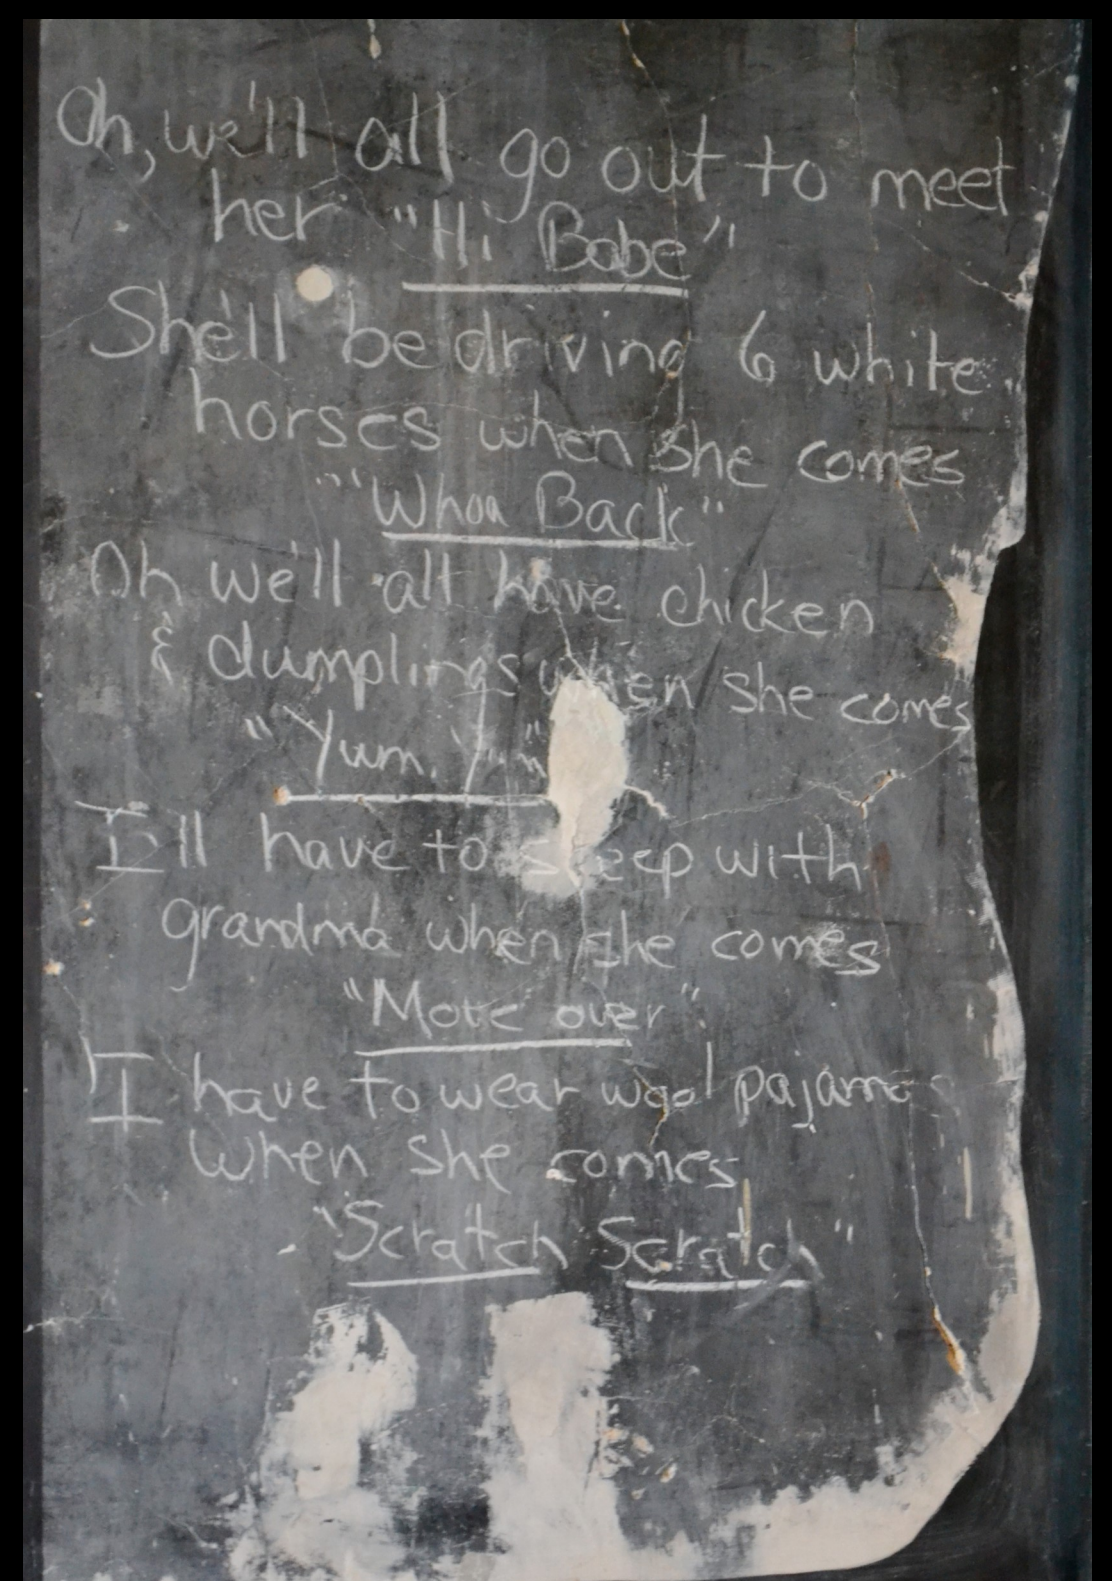 Oh, we'll all go out to meet
her "Hi Babe"
She'll be driving 6 white
horses when she comes
"Whoa Back"
Oh we'll all have chicken
& dumplings when she comes
"Yum, Yum"
I'll have to sleep with
grandma when she comes
"Move over"
I have to wear wool pajamas
when she comes
"Scratch Scratch"